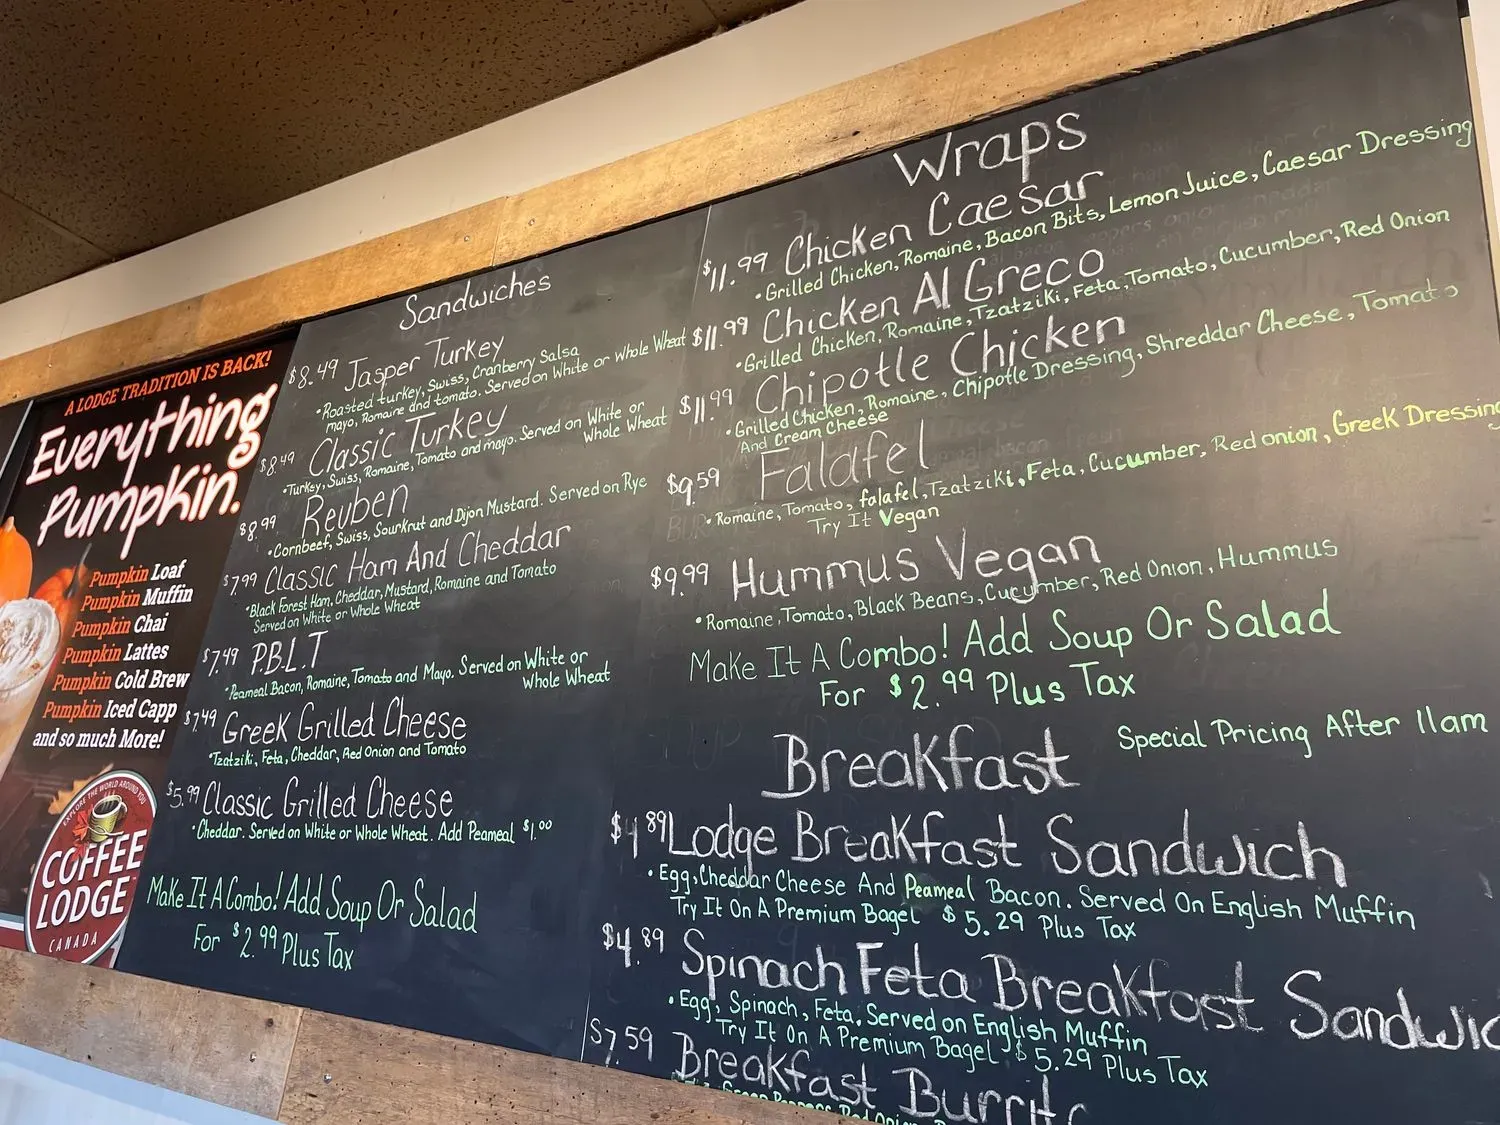 A LODGE TRADITION IS BACK!
Everything
Pumpkin.
Pumpkin Loaf
Pumpkin Muffin
Pumpkin Chai
Pumpkin Lattes
Pumpkin Cold Brew
Pumpkin Iced Capp
and so much More!
EXPLORE THE WORLD AROUND YOU
COFFEE
LODGE
CANADA
Sandwiches
$8.49 Jasper Turkey
•Roasted turkey, Swiss, Cranberry Salsa
mayo, Romaine and tomato. Served on White or Whole Wheat
$8.49 Classic Turkey
•Turkey, Swiss, Romaine, Tomato and mayo. Served on White or
Whole Wheat
$8.99 Reuben
•Cornbeef, Swiss, Sourkrut and Dijon Mustard. Served on Rye
$7.99 Classic Ham And Cheddar
•Black Forest Ham, Cheddar, Mustard, Romaine and Tomato
Served on White or Whole Wheat
$7.49 P.B.L.T
•Peameal Bacon, Romaine, Tomato and Mayo. Served on White or
Whole Wheat
$7.49 Greek Grilled Cheese
•Tzatziki, Feta, Cheddar, Red Onion and Tomato
$5.99 Classic Grilled Cheese
•Cheddar. Served on White or Whole Wheat. Add Peameal $1.00
Make It A Combo! Add Soup Or Salad
For $2.99 Plus Tax
Wraps
$11.99 Chicken Caesar
•Grilled Chicken, Romaine, Bacon Bits, Lemon Juice, Caesar Dressing
$11.99 Chicken Al Greco
•Grilled Chicken, Romaine, Tzatziki, Feta, Tomato, Cucumber, Red Onion
$11.99 Chipotle Chicken
•Grilled Chicken, Romaine, Chipotle Dressing, Shreddar Cheese, Tomato
And Cream Cheese
$9.59 Falafel
•Romaine, Tomato, falafel, Tzatziki, Feta, Cucumber, Red onion, Greek Dressing
Try It Vegan
$9.99 Hummus Vegan
•Romaine, Tomato, Black Beans, Cucumber, Red Onion, Hummus
Make It A Combo! Add Soup Or Salad
For $2.99 Plus Tax
Breakfast Special Pricing After 11am
$4.89 Lodge Breakfast Sandwich
•Egg, Cheddar Cheese And Peameal Bacon. Served On English Muffin
Try It On A Premium Bagel $5.29 Plus Tax
$4.89 Spinach Feta Breakfast Sandwic
•Egg, Spinach, Feta. Served on English Muffin
Try It On A Premium Bagel $5.29 Plus Tax
$7.59 Breakfast Burrito